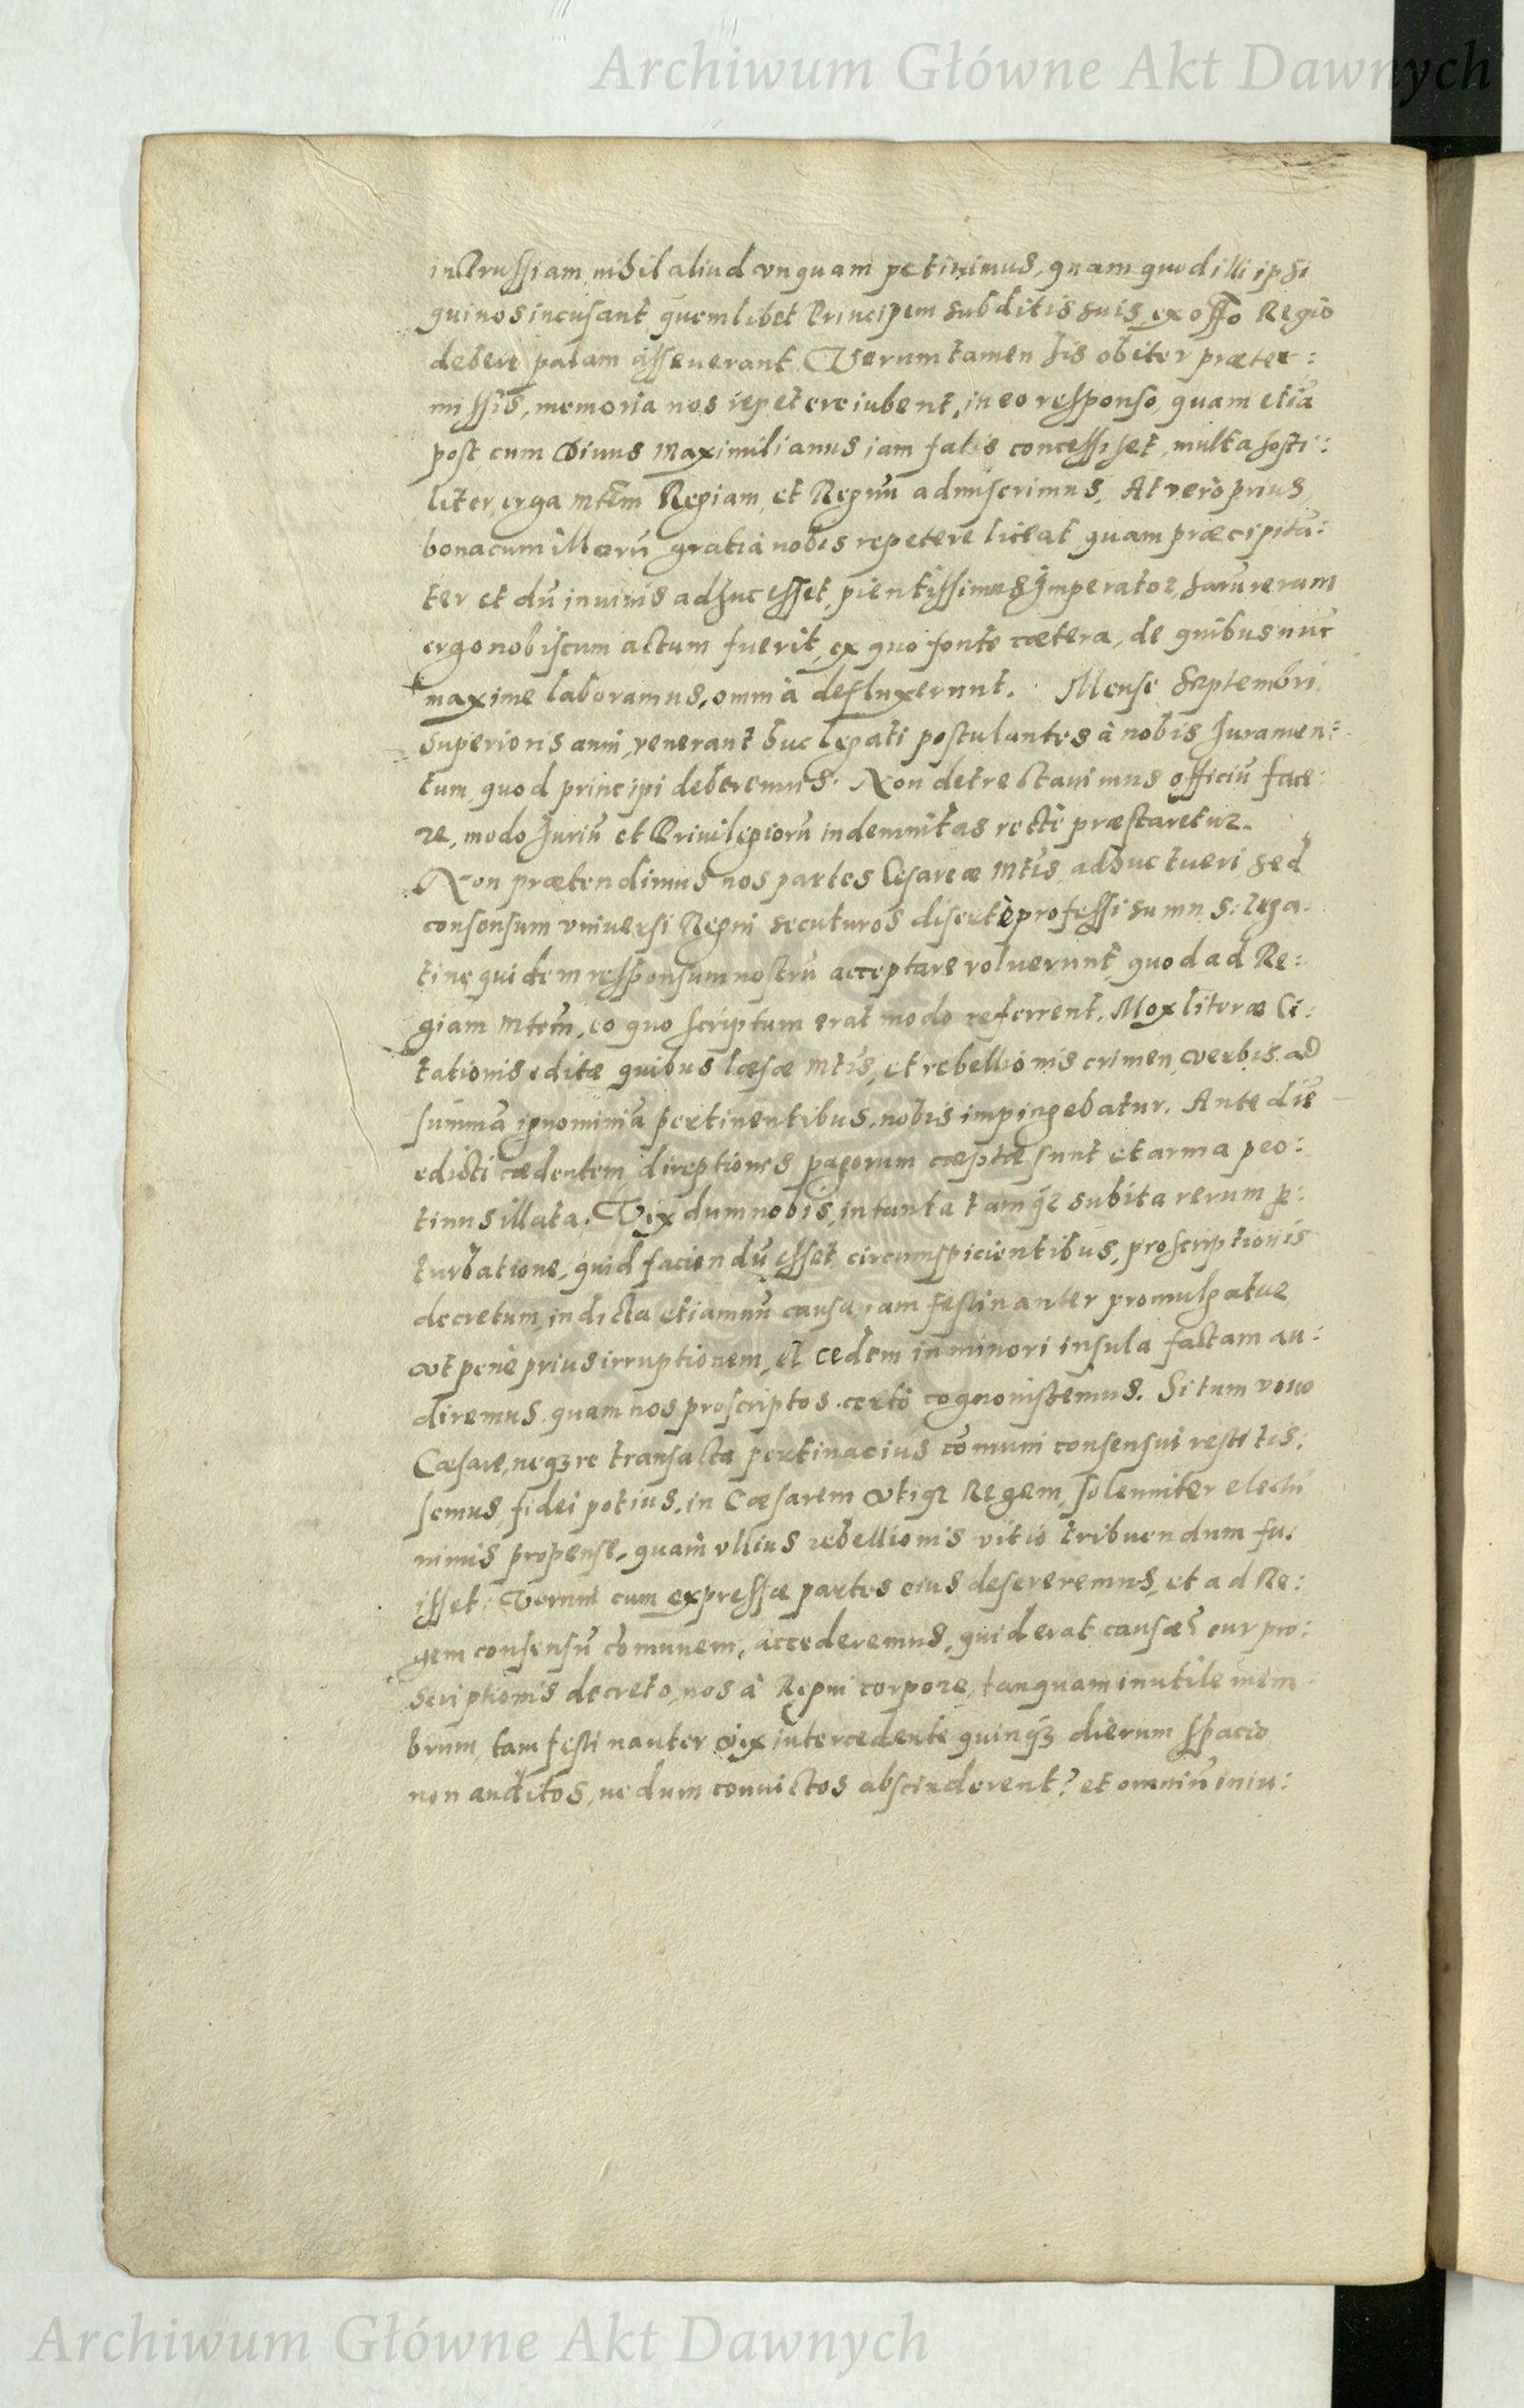 Archiwum Główne Akt Dawnych
in Prussiam nihil aliud vnquam petiuimus, quam quod illi ipsi
qui nos incusant quemlibet Principem subditis suis, ex offo Regio
debere palam asseuerant. Verumtamen his obiter præter:
missis, memoria nos repetere iubent, in eo responso, quam etiã
post, cum Diuus Maximilianus iam fatis concessisset, multa hosti:
liter, erga Mtem Regiam, et Regnũ admiserimus. At verò prius
bona cum illorũ gratia nobis repetere liceat quam præcipitã:
ter, et dũ in viuis adhuc esset, pientissimus Imperator, harũ rerum
ergo nobiscum actum fuerit, ex quo fonte cætera, de quibus nũc
maxime laboramus, omnia defluxerunt. Mense Septembri
superioris anni, venerant huc legati postulantes à nobis Iuramen:
tum, quod principi deberemus. Non detrectauimus officiũ face:
re, modo Iuriũ et Priuilegiorũ indemnitas rectè præstaretur.
Non prætendimus nos partes Cesareæ Mtis adhuc tueri sed
consensum vniuersi Regni secuturos disertè professi sumus: Lega:
ti ne quidem responsum nostrũ acceptare voluerunt, quod ad Re:
giam Mtem, eo quo scriptum erat modo referrent. Mox literæ Ci:
tationis editæ quibus læsæ Mtis, et rebellionis crimen, verbis ad
summã ignominiã pertinentibus, nobis impingebatur. Ante diẽ
edicti cædentem, direptiones pagorum cæptæ sunt et arma peo:
tinus illata. Vix dum nobis, in tanta tamq; subita rerum p:
turbatione, quid faciendũ esset circumspicientibus, proscriptionis
decretum, indicta etiamnũ causa, iam festinanter promulgatur
vt penè prius irruptionem, et cedem in minori insula factam au:
diremus, quam nos proscriptos certò cognouissemus. Si tum viuo
Cæsare, neq; re transacta pertinacius cõmuni consensui restitis:
semus, fidei potius, in Cæsarem vtiq; Regem, solenniter electũ
nimis propense, quam vllius rebellionis vitio tribuendum fu:
isset. Verum cum expresse partes eius desereremus, et ad Re:
gem consensũ cõmunem, accederemus, quid erat causæ? cur pro:
scriptionis decreto, nos à Regni corpore, tanquam inutile mem
brum, tam festinanter vix intercedente quinq; dierum spacio
non auditos, nedum conuictos abscinderent? et omniũ iniu:
Archiwum Główne Akt Dawnych